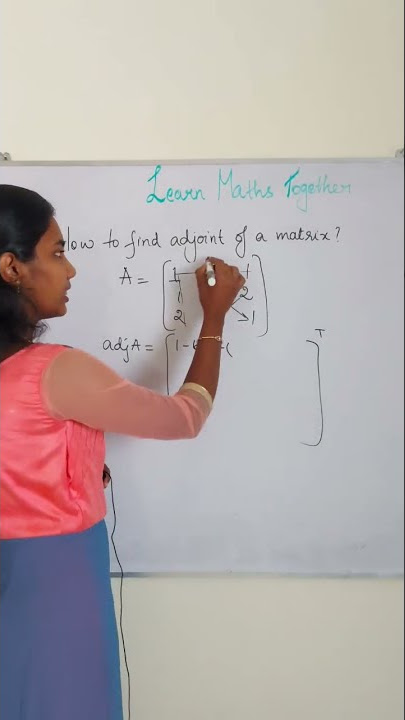 Learn Maths Together
How to find adjoint of a matrix?
A = [1 1
1 2
2 1]
adj A = [1 - - ( ]T